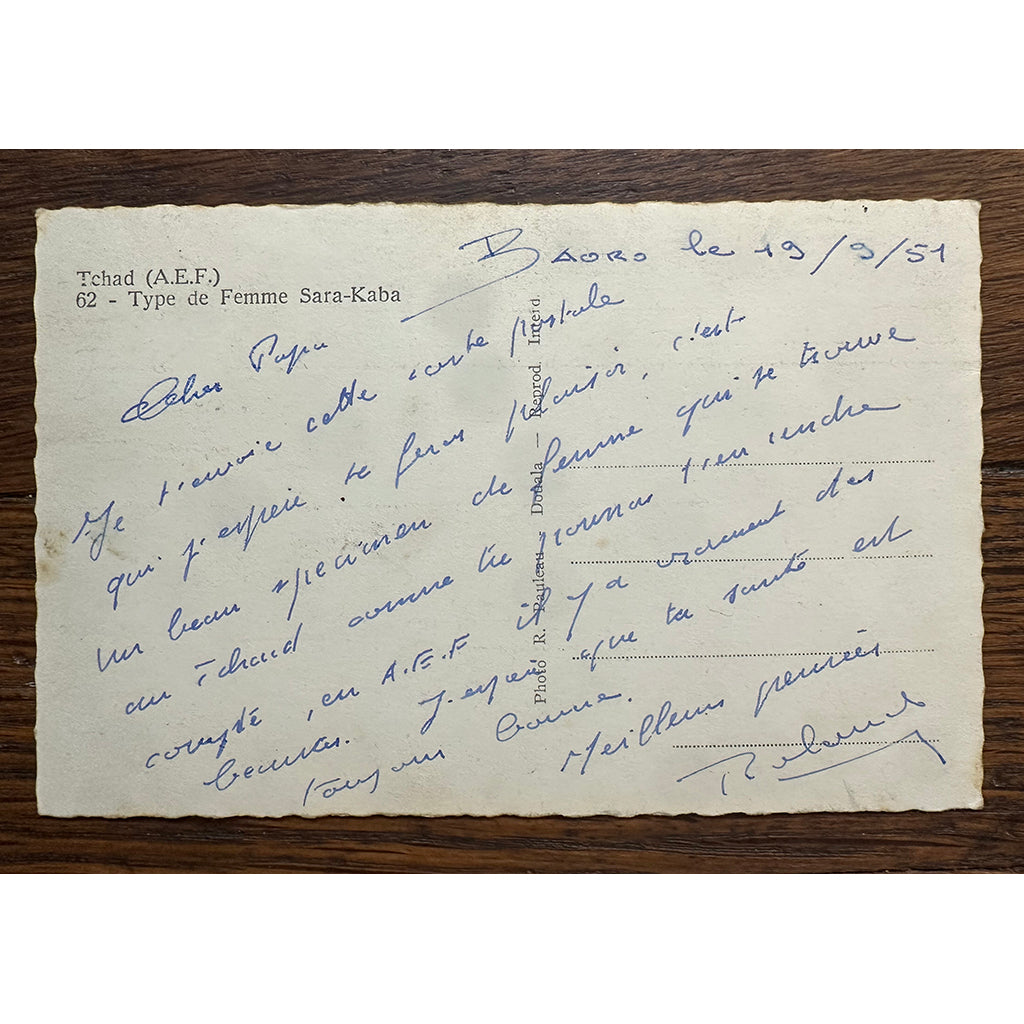 Tchad (A.E.F.)
62 - Type de Femme Sara-Kaba
Baoro le 19/9/51
Cher Papa
Je t'envoie cette carte postale
qui j'espère te feras plaisir, c'est
un beau specimen de femme qui se trouve
au Tchad comme tu pourras t'en rendre
compte, en A.E.F il y a vraiment des
beautés. J'espère que ta santé est
toujours bonne.
Meilleurs pensées
Roland
Photo R. Pauleau - Douala — Reprod. Interd.